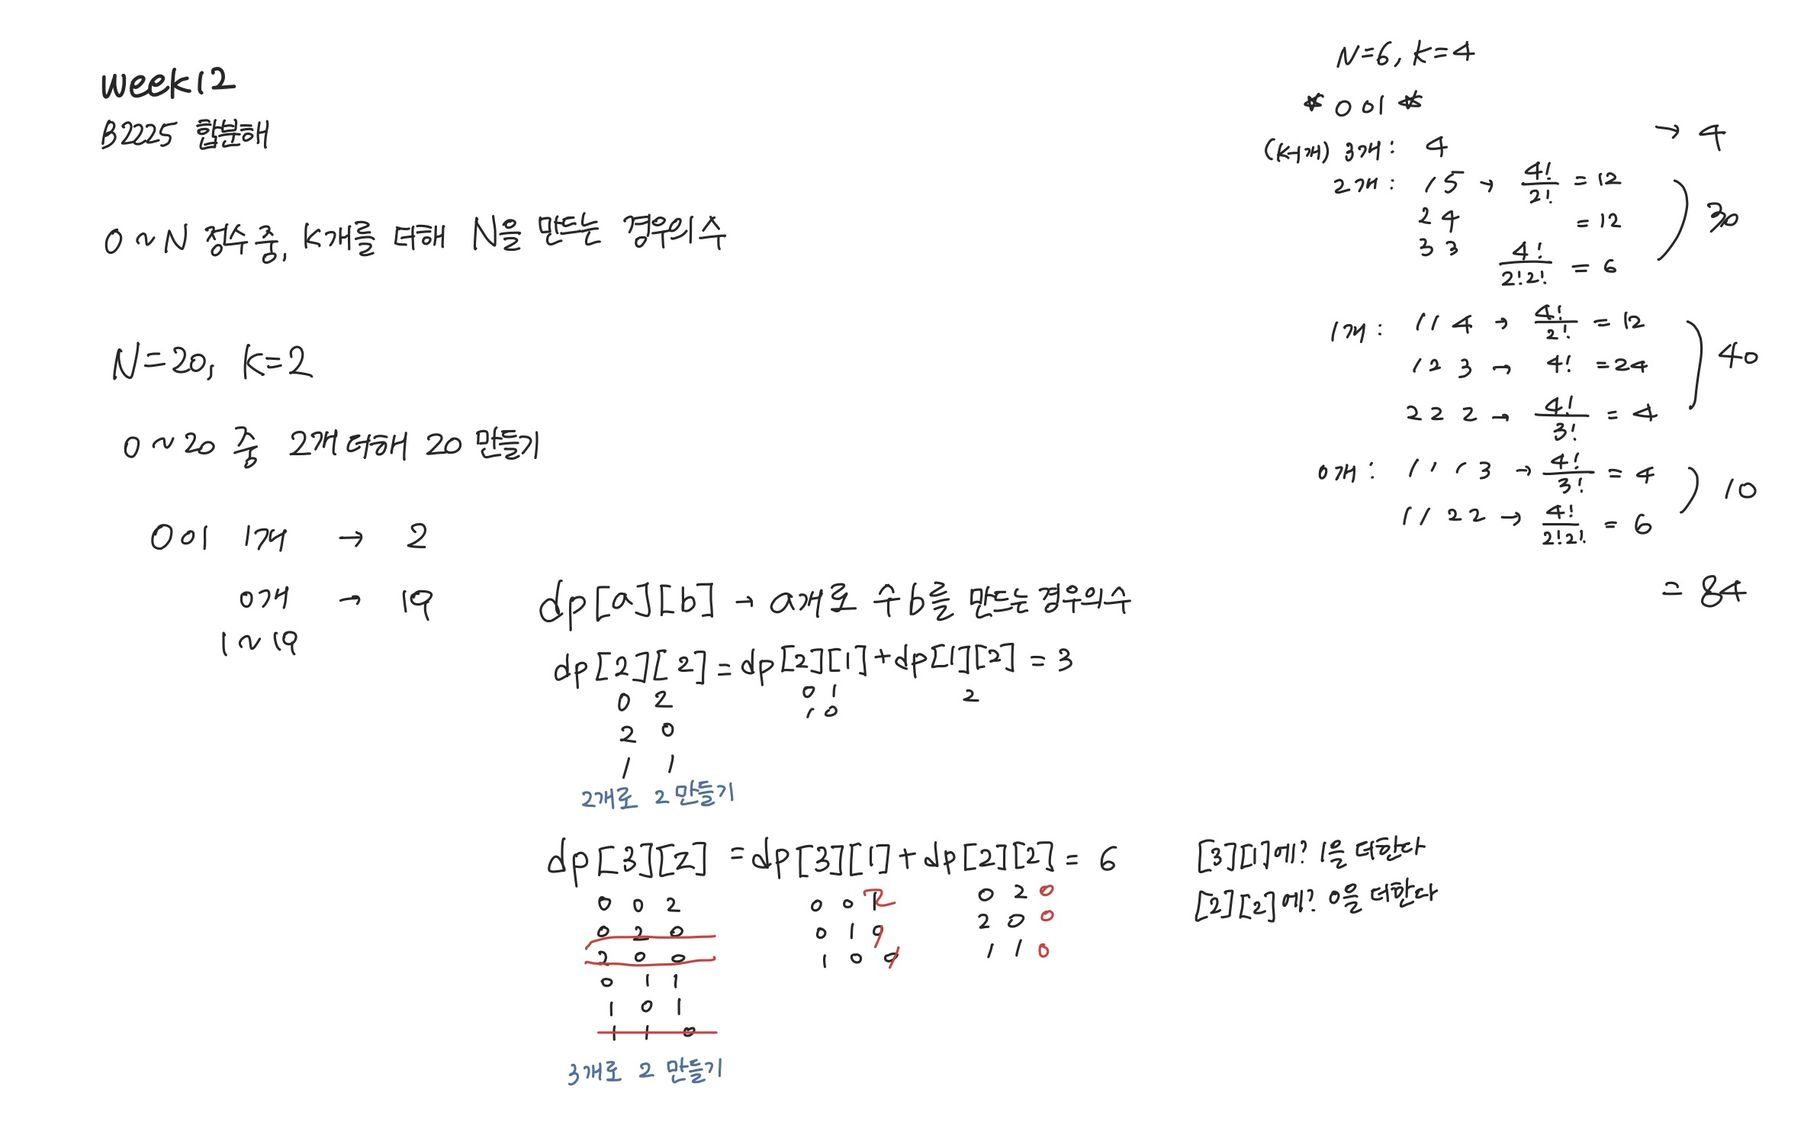 week12
B2225 합분해
0 ~ N 정수 중, K개를 더해 N을 만드는 경우의 수
N=20, K=2
0 ~ 20 중 2개 더해 20 만들기
0이 1개 → 2
0개 → 19
1 ~ 19
N=6, K=4
* 0이 *
(K-1개) 3개: 4 → 4
2개: 1 5 → 4!/2! = 12
2 4 = 12
3 3 4!/2!2! = 6
) 30
1개: 1 1 4 → 4!/2! = 12
1 2 3 → 4! = 24
2 2 2 → 4!/3! = 4
) 40
0개: 1 1 1 3 → 4!/3! = 4
1 1 2 2 → 4!/2!2! = 6
) 10
= 84
dp[a][b] → a개로 수 b를 만드는 경우의 수
dp[2][2] = dp[2][1] + dp[1][2] = 3
0 2 0 1 2
2 0 1 0
1 1
2개로 2 만들기
dp[3][2] = dp[3][1] + dp[2][2] = 6
0 0 2 0 0 1 2 0 2 0
0 2 0 0 1 0 2 0 0
2 0 0 1 0 0 1 1 0
0 1 1
1 0 1
1 1 0
3개로 2 만들기
[3][1]에? 1을 더한다
[2][2]에? 0을 더한다